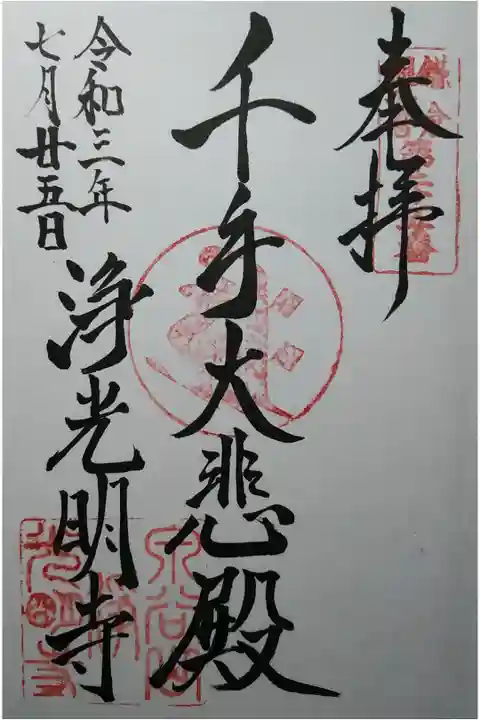 奉拝
千手大悲殿
令和三年
七月廿五日
浄光明寺